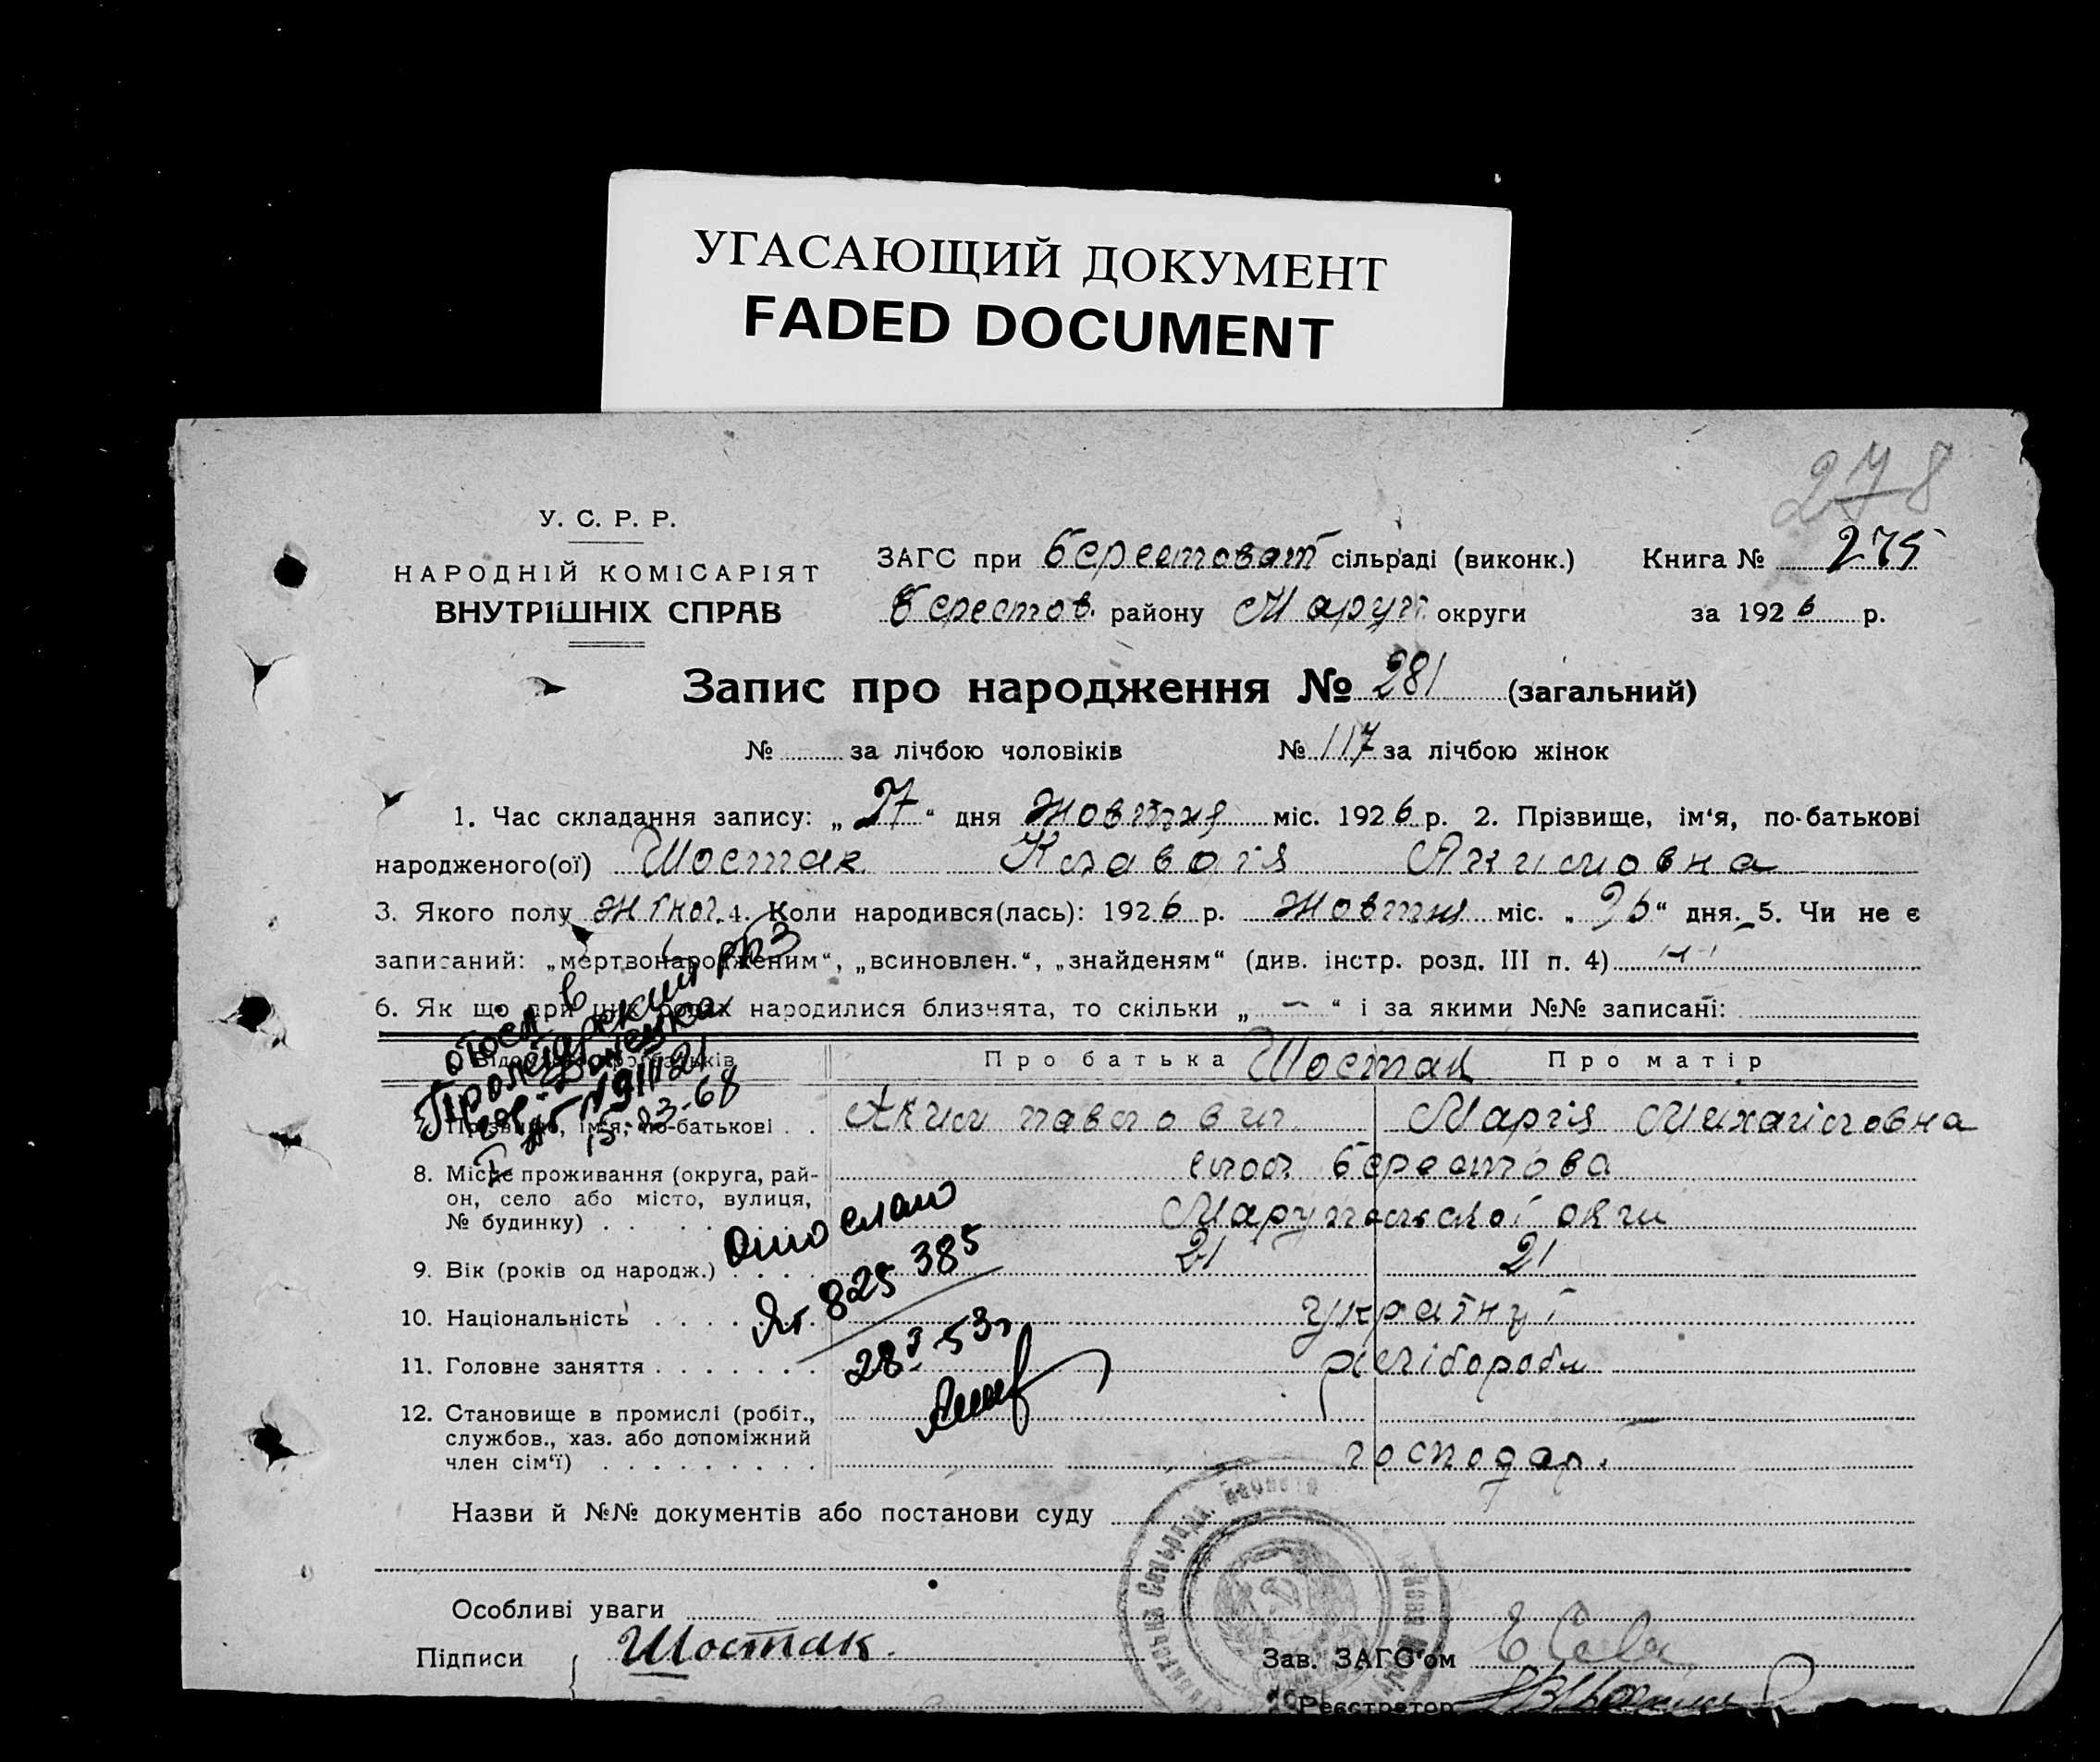 УГАСАЮЩИЙ ДОКУМЕНТ
FADED DOCUMENT
278
У. С. Р. Р.
НАРОДНІЙ КОМІСАРІЯТ
ВНУТРІШНІХ СПРАВ
ЗАГС при Берестоват сільраді (виконк.) Книга № 275
Берестов. району Маруп округи за 1926 р.
Запис про народження № 281 (загальний)
№ за лічбою чоловіків № 117 за лічбою жінок
1. Час складання запису: „27“ дня жовтня міс. 1926 р. 2. Прізвище, ім‘я, по-батькові
народженого(ої) Шостак Клавдія Якимовна
3. Якого полу жіноч. 4. Коли народився(лась): 1926 р. жовтня міс. „26“ дня. 5. Чи не є
записаний: „мертвонародженим“, „всиновлен.“, „знайденям“ (див. інстр. розд. III п. 4)
6. Як що при цих родах народилися близнята, то скільки „—“ і за якими №№ записані:
Про батька Шостак Про матір
7. Прізвище, ім‘я, по-батькові . . Аким Павлович Марія Михайловна
8. Місце проживання (округа, рай-
он, село або місто, вулиця,
№ будинку) . . . . слоб. Берестова
Марупольської окги
9. Вік (років од народж.) . . . . 21 21
10. Національність . . . . . . . україн
11. Головне заняття . . . . . . . хлібороби
12. Становище в промислі (робіт.,
службов., хаз. або допоміжний
член сім‘ї) . . . . . . . . . господар.
отосл в
Пролетарский рбз
гор. Донецка
№ 191121
15-23-68
Отослано
Яг 825 385
28 3 53г
Назви й №№ документів або постанови суду
Особливі уваги
Підписи Шостак. Зав. ЗАГС‘ом
Реєстратор